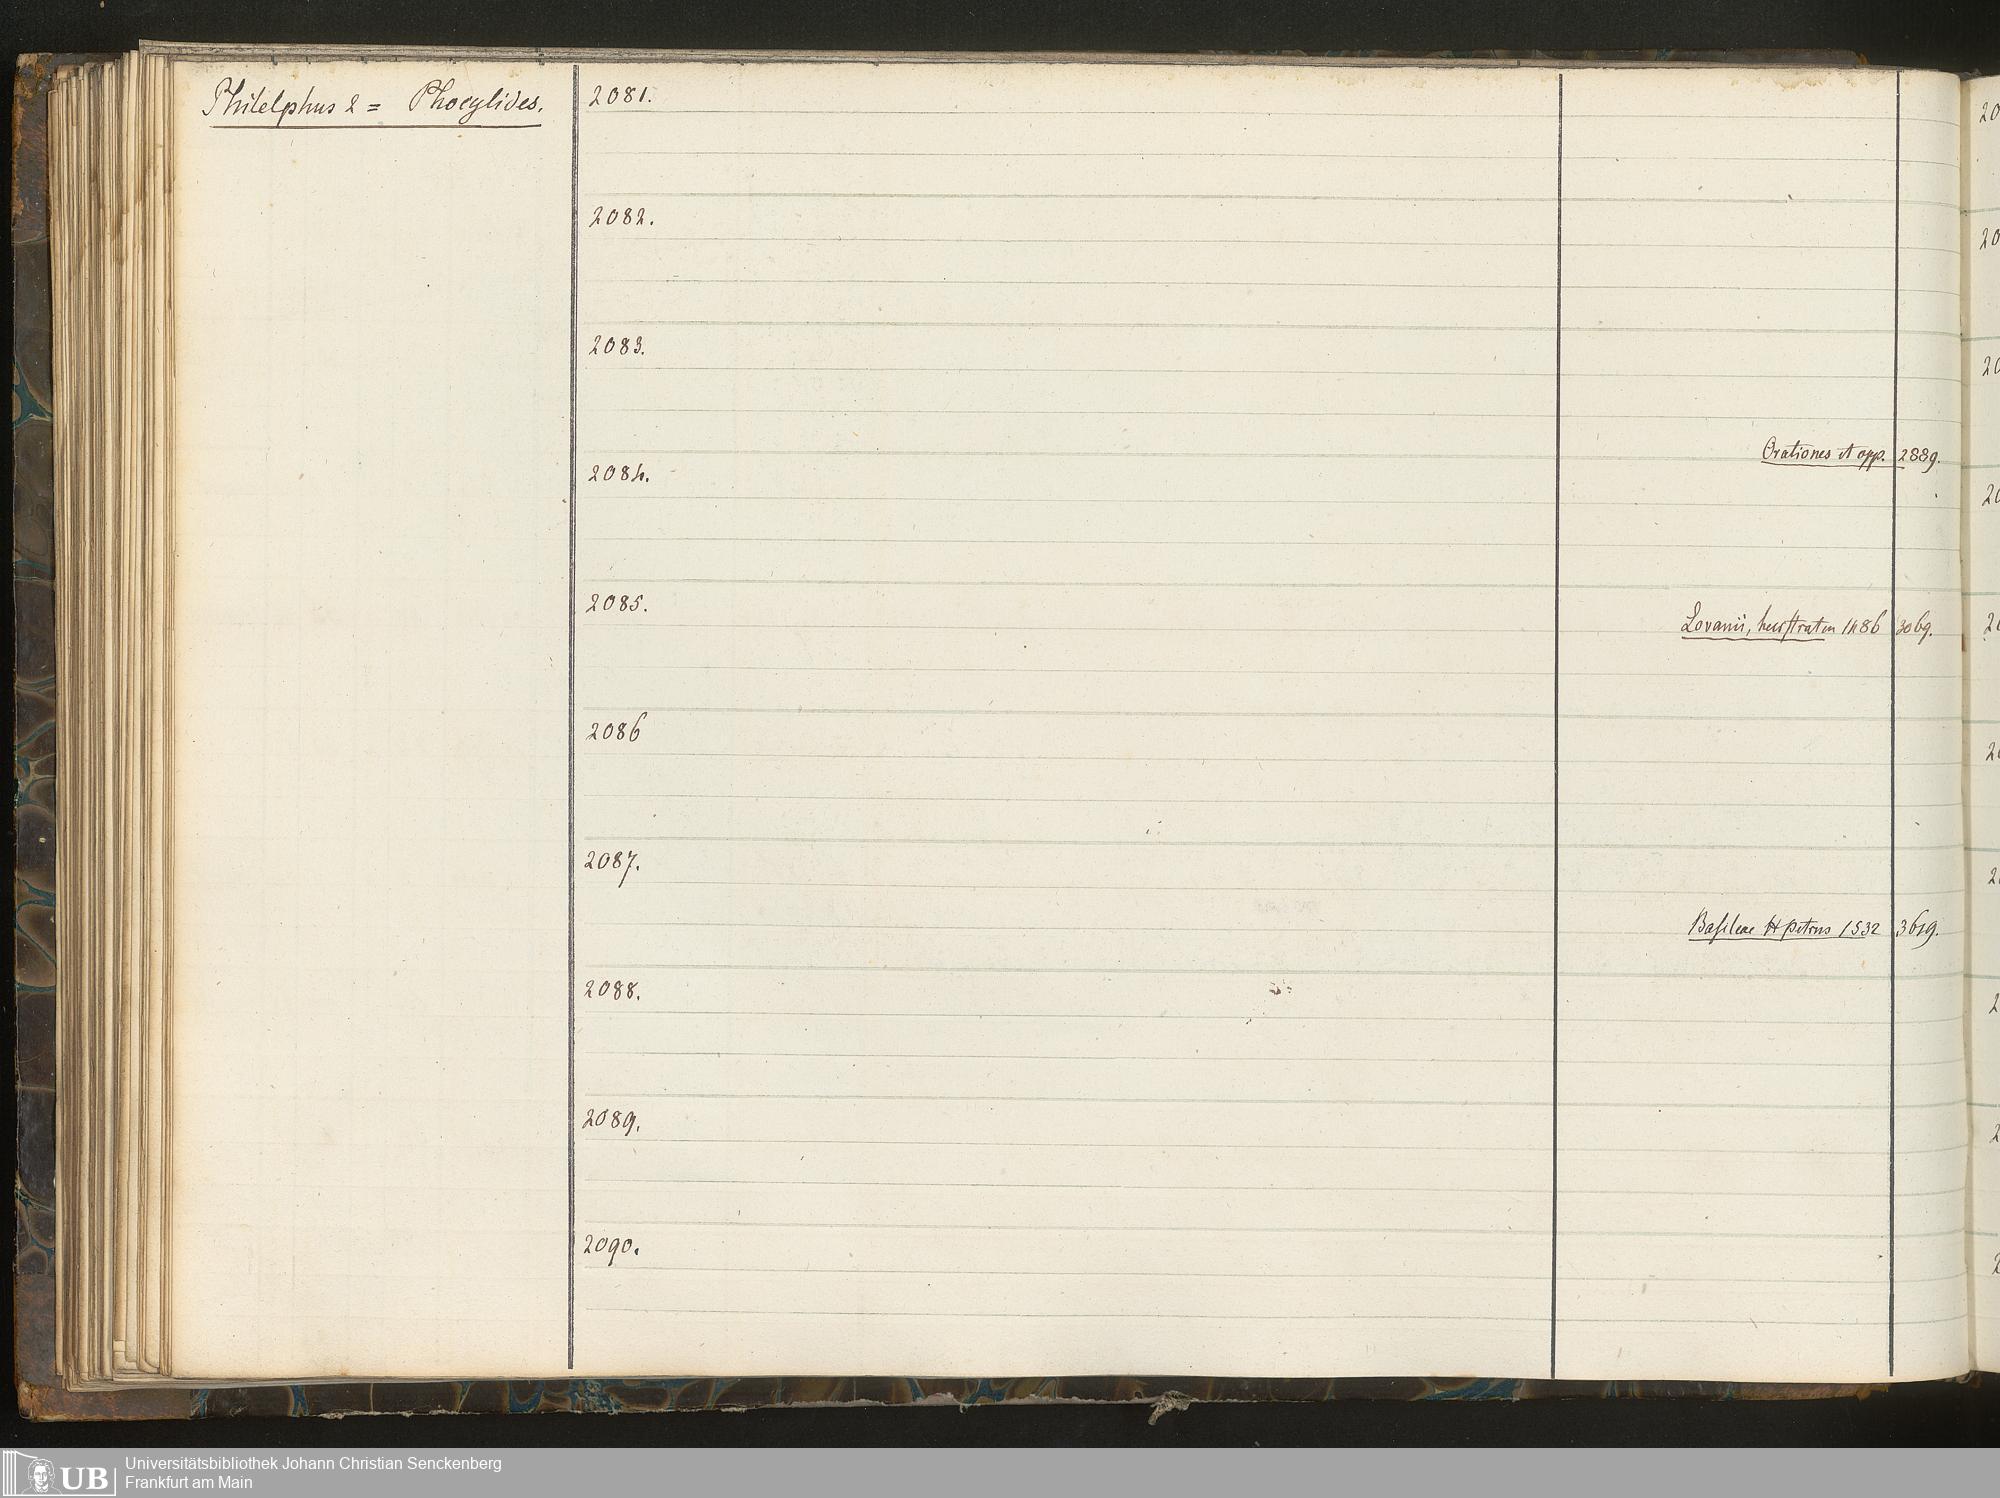 Philelphus 2 = Phocylides.
2081.
2082.
2083.
Orationes et opp. 2889.
2084.
2085.
Lovanii, 1486 3069.
2086
2087.
Basileae H Petrus 1532 3619.
2088.
2089.
2090.
20
20
20
20
20
20
2
2
2
2
UB
Universitätsbibliothek Johann Christian Senckenberg
Frankfurt am Main